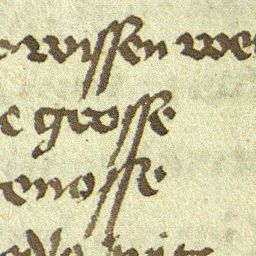 wissen we
e grosse
enosse